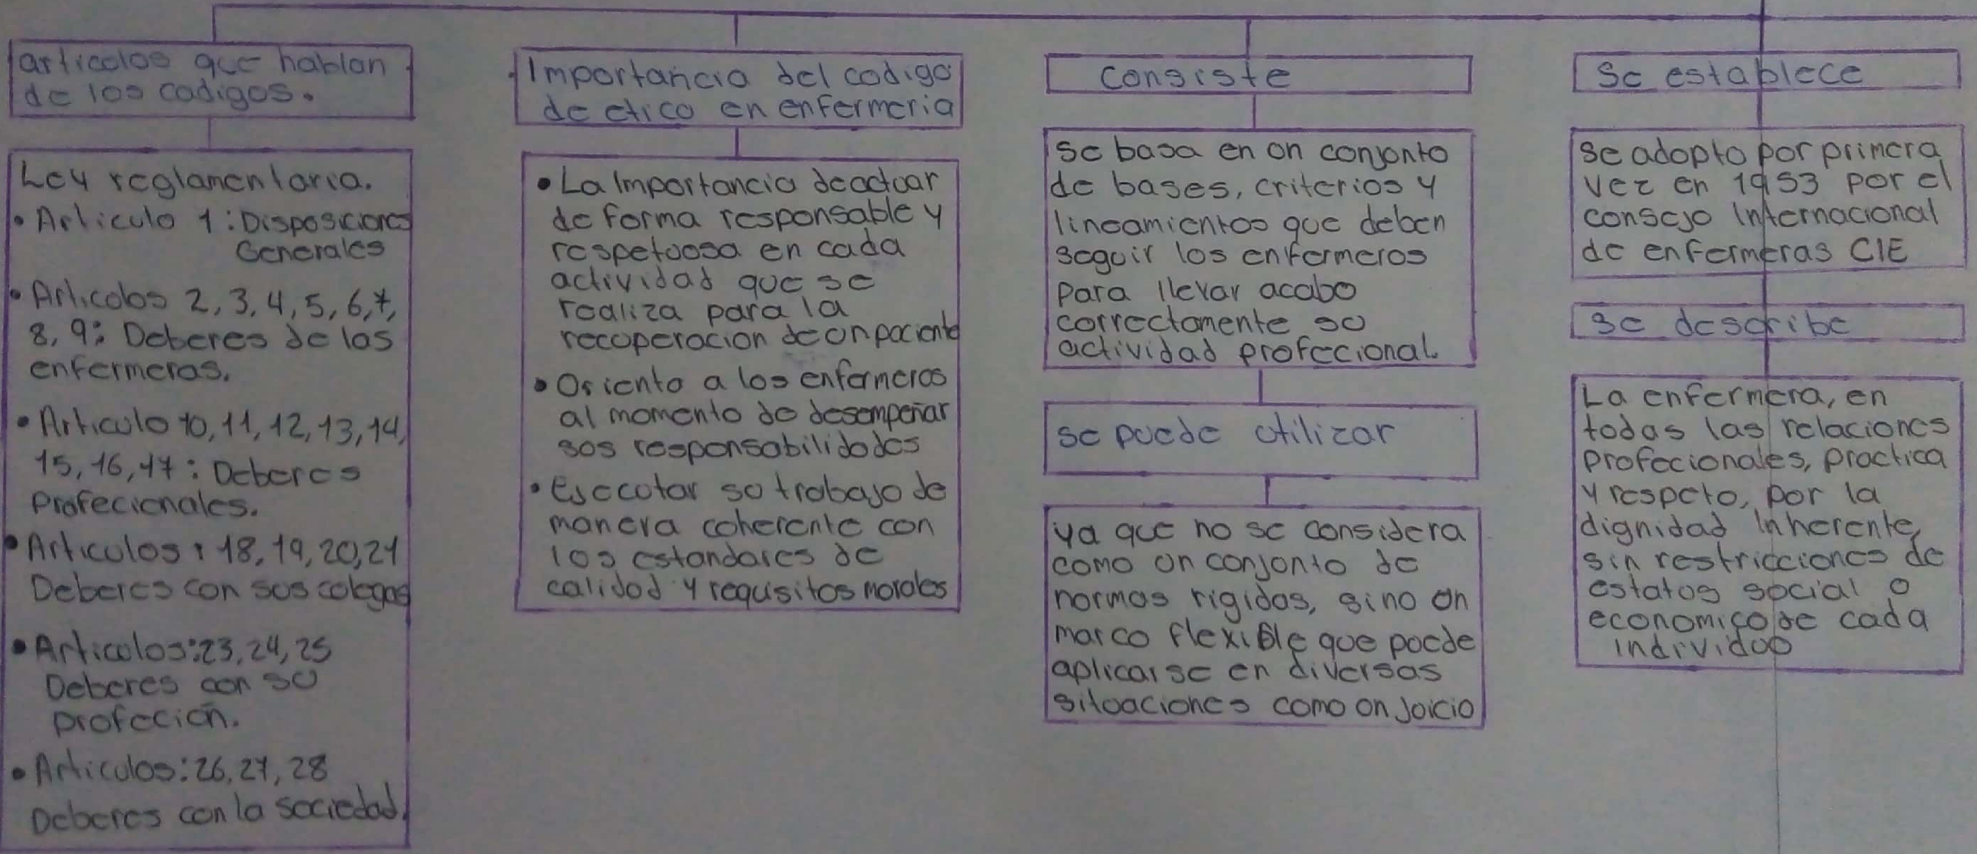 articolos que hablan
de los codigos.
Ley reglamentaria.
• Articulo 1: Disposiciones
Generales
• Articolos 2, 3, 4, 5, 6, 7,
8, 9: Deberes de las
enfermeras.
• Articulo 10, 11, 12, 13, 14,
15, 16, 17: Deberes
Profecionales.
• Articulos: 18, 19, 20, 21
Deberes con sus colegas
• Articolos: 23, 24, 25
Deberes con su
profeción.
• Articulos: 26, 27, 28
Deberes con la sociedad.
Importancia del codigo
de etico en enfermeria
• La Importancia de actuar
de forma responsable y
respetuosa en cada
actividad que se
realiza para la
recuperacion de un paciente
• Orienta a los enfermeros
al momento de desempeñar
sus responsabilidades
• Ejecutar su trabajo de
manera coherente con
los estandares de
calidad y requisitos morales
Consiste
Se basa en un conjunto
de bases, criterios y
lineamientos que deben
seguir los enfermeros
para llevar acabo
correctamente su
actividad profecional.
se puede utilizar
ya que no se considera
como un conjunto de
normas rigidas, sino un
marco flexible que puede
aplicarse en diversas
situaciones como un juicio
Se establece
Se adopto por primera
vez en 1953 por el
consejo Internacional
de enfermeras CIE
Se describe
La enfermera, en
todas las relaciones
profecionales, practica
y respeto, por la
dignidad inherente,
sin restricciones de
estatus social o
economico de cada
individuo